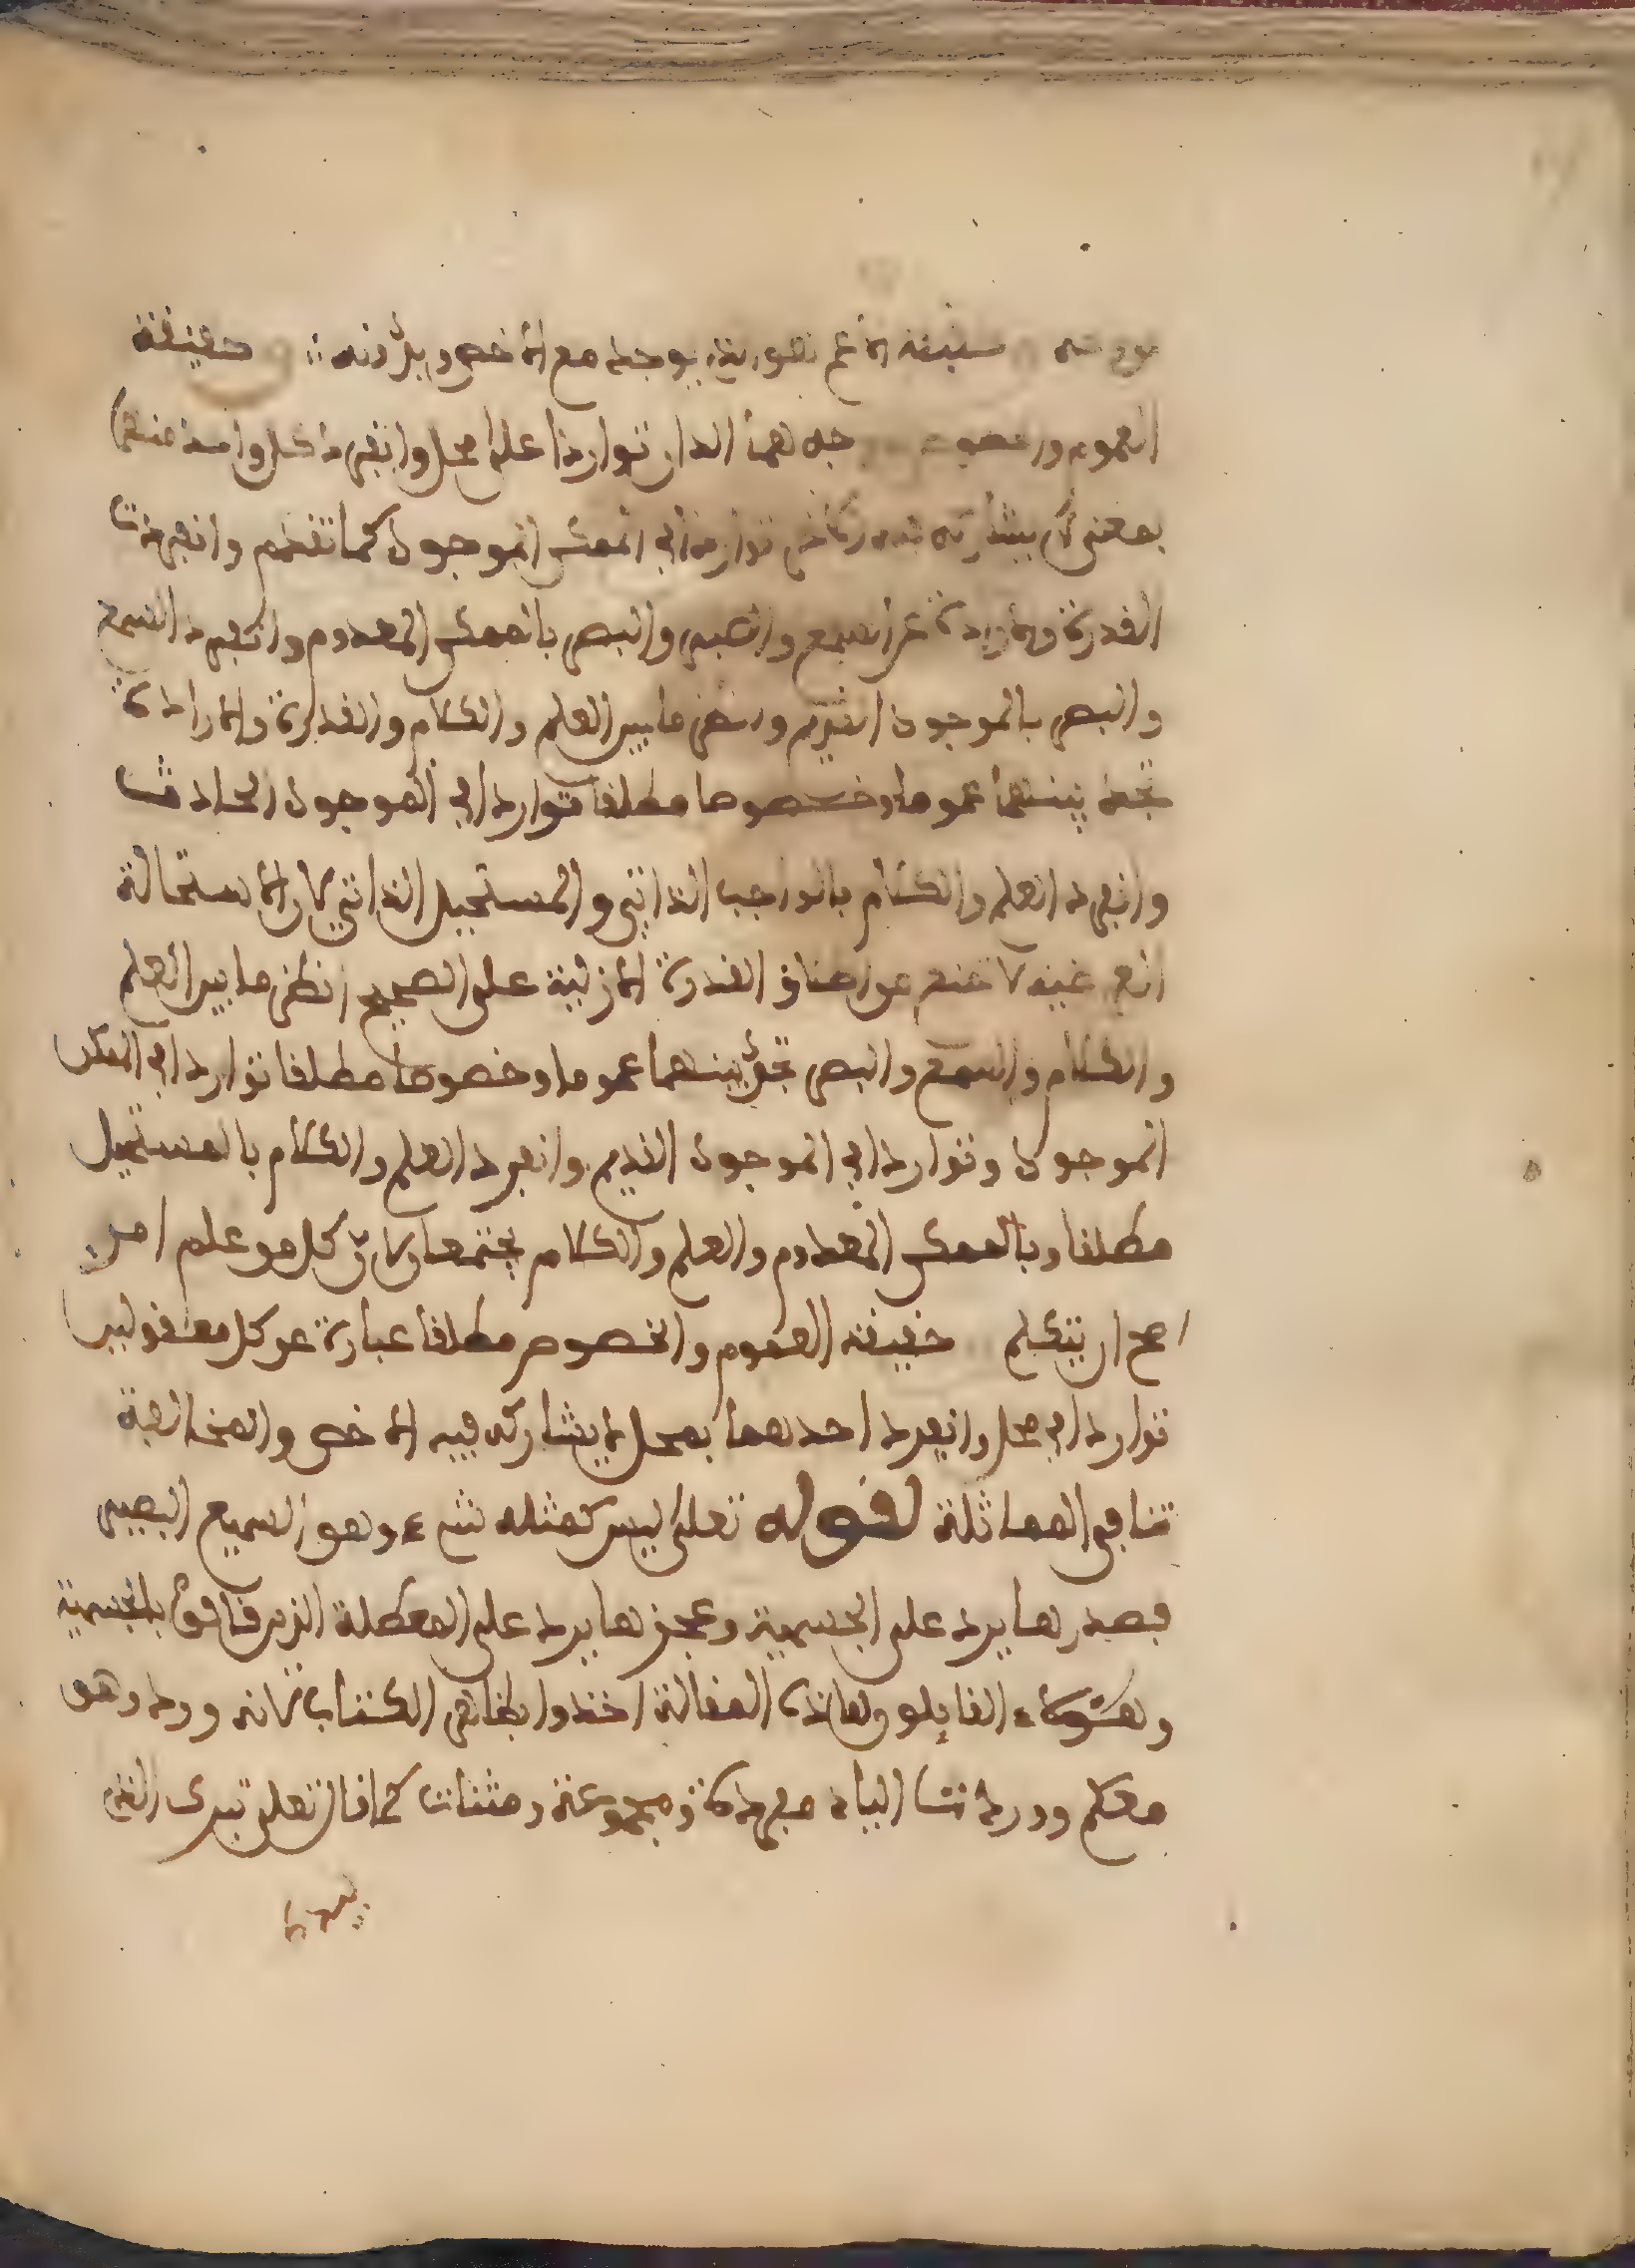 حقيقة الأعم هو الذي يوجد مع الأخص وبدونه حقيقة
العموم والخصوص وجه هما اللذان تواردا على محل وانفرد كل واحد منهما
بمعنى لا يشاركه فيه الآخر تواردا في الممكن الموجود كما تقدم وانفردت
القدرة والإرادة عن السمع والبصر والبصر بالممكن المعدوم وانفرد السمع
والبصر بالموجود القديم وانظر ما بين العلم والكلام والقدرة والإرادة
تجد بينهما عموما وخصوصا مطلقا تواردا في الموجود الحادث
وانفرد العلم والكلام بالواجب الذاتي والمستحيل الذاتي لأن الاستحالة
الغير غيه لا تمنع من تعلق القدرة الأزلية على الصحيح انظر ما بين العلم
والكلام والسمع والبصر تجد بينهما عموما وخصوصا مطلقا تواردا في الممكن
الموجود وتواردا في الموجود القديم وانفرد العلم والكلام بالمستحيل
مطلقا وبالممكن المعدوم والعلم والكلام يجتمعان لأن كل من علم امر
صح ان يتكلم حقيقة العموم والخصوص مطلقا عبارة عن كل معقولين
تواردا في محل وانفرد احدهما بمحل لا يشاركه فيه الأخص والمخالفة
تنافي المماثلة لقوله تعلى ليس كمثله شيء وهو السميع البصير
فصدرها يرد على الجسمية وعجزها يرد على المعطلة الذين قالوا بالجسمية
وهؤلاء القايلون هاذه المقالة اخذوا بظاهر الكتاب لأنه ورد وهو
محكم ووردت اليد مفردة ومجموعة ومثنات كما قال تعلى تبرك الذي
بيده